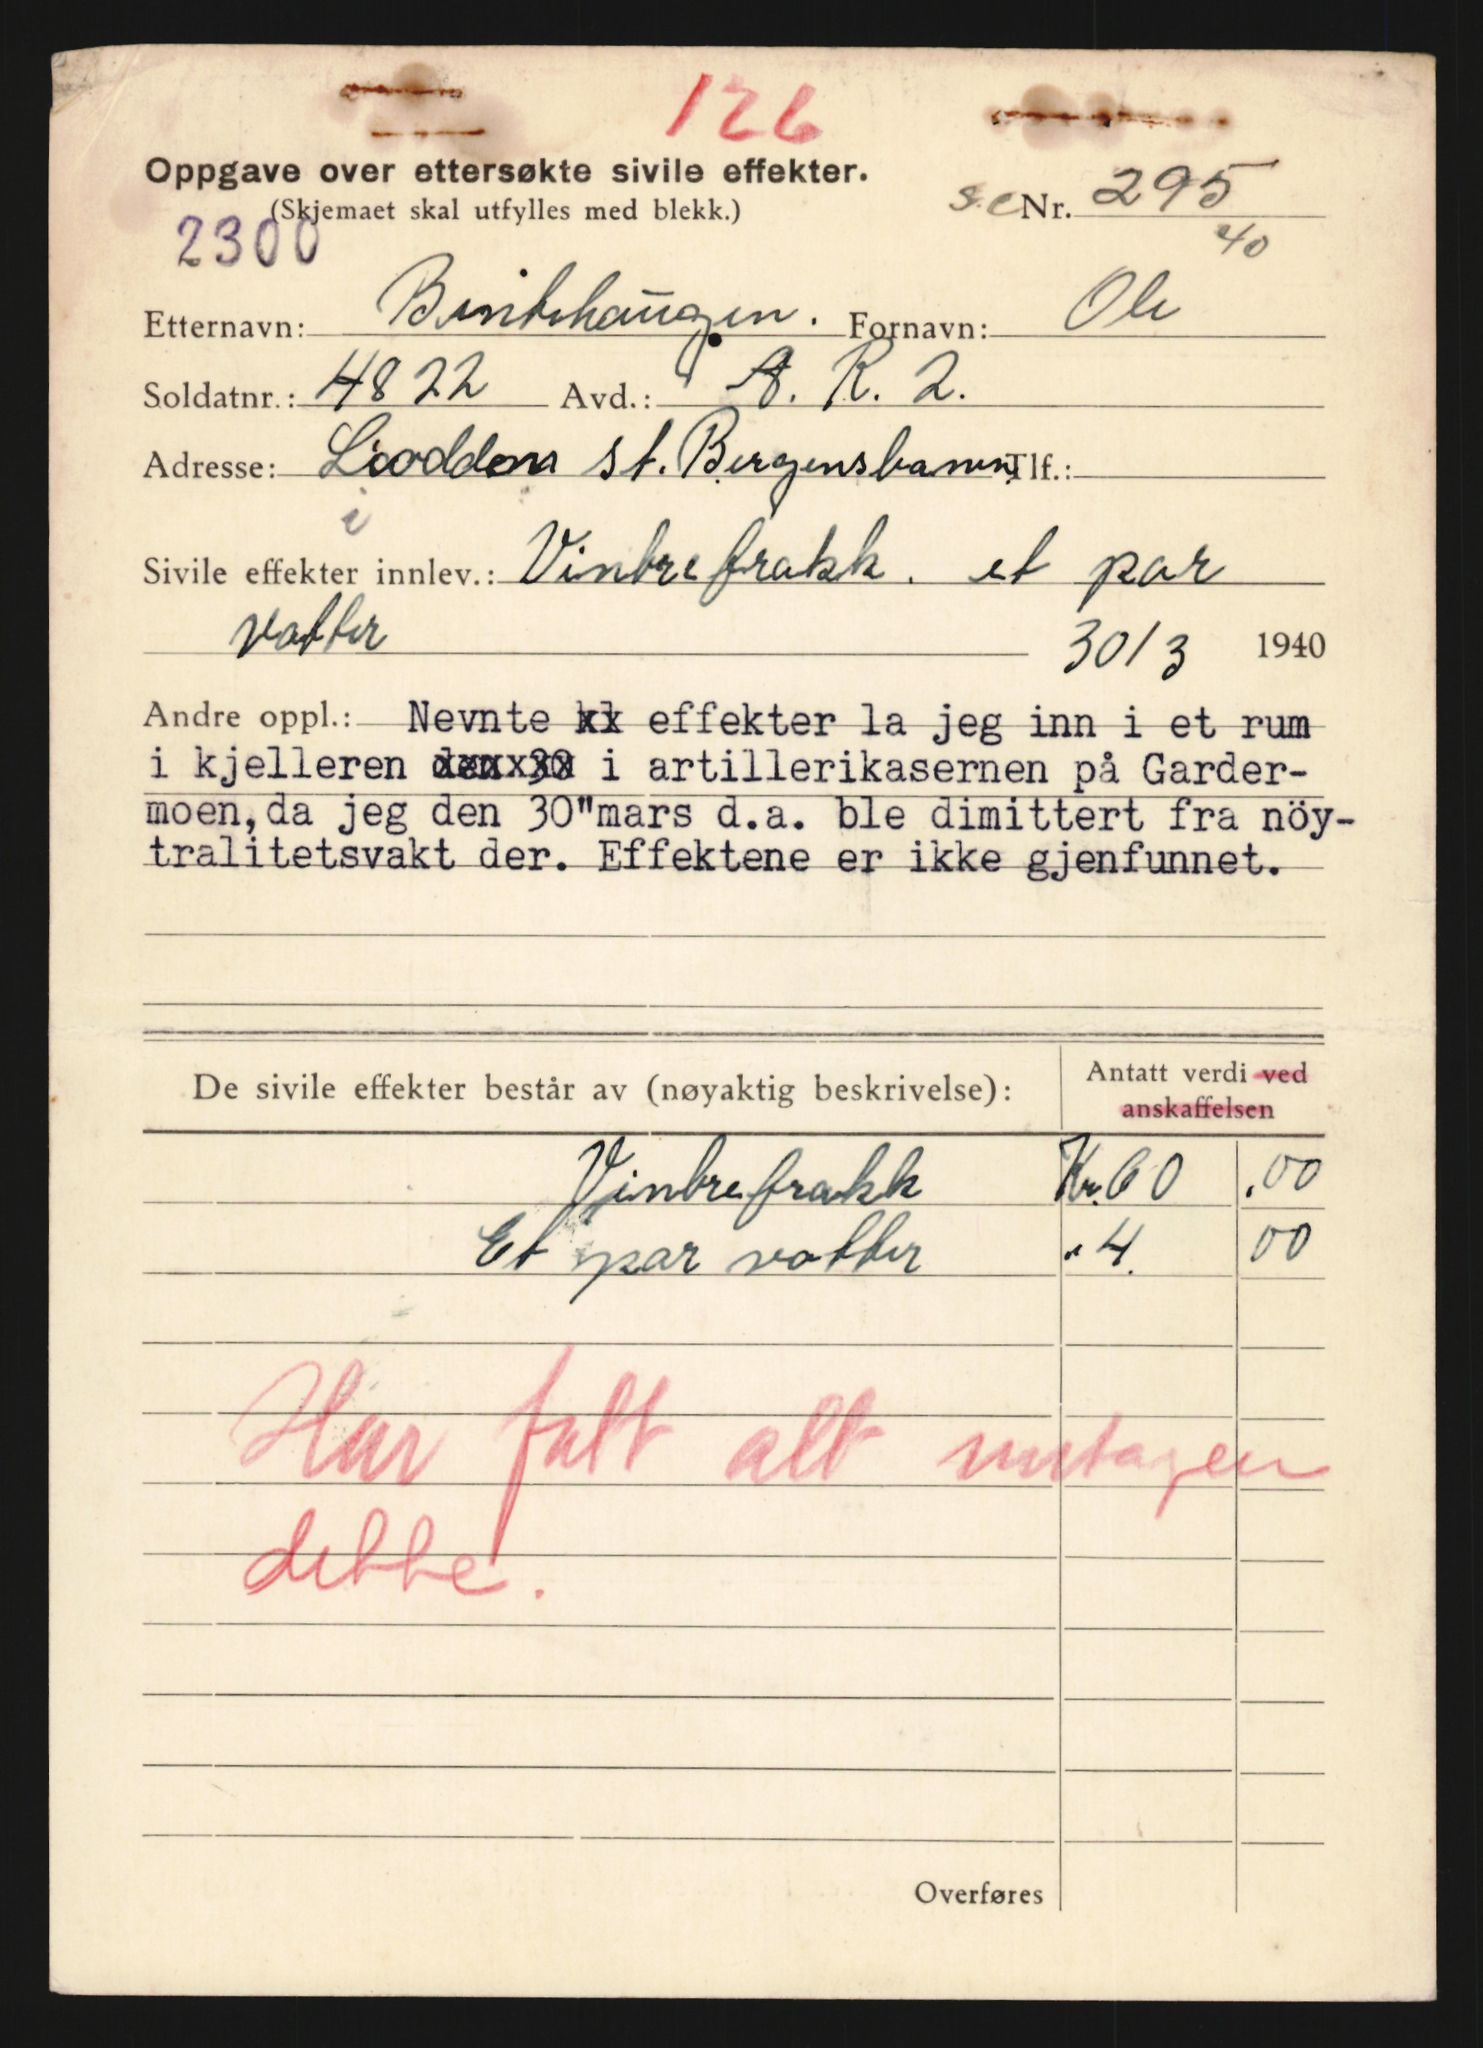 126
Oppgave over ettersøkte sivile effekter.
(Skjemaet skal utfylles med blekk.)
Nr. 295
40
2300
Etternavn: Bentehaugen. Fornavn: Ole
Soldatnr.: 4822 Avd.: A. R. 2.
Adresse: Lioddem st. Bergensbanen Tlf.:
i
Sivile effekter innlev.: Vintrefrakk. et par
votter 30/3 1940
Andre oppl.: Nevnte xx effekter la jeg inn i et rum
i kjelleren denxx30 i artillerikasernen på Garder-
moen, da jeg den 30"mars d.a. ble dimittert fra nöy-
tralitetsvakt der. Effektene er ikke gjenfunnet.
De sivile effekter består av (nøyaktig beskrivelse): Antatt verdi ved
anskaffelsen
Vintrefrakk Kr. 60 .00
Et par votter " 4. 00
Har fått alt untagen
dette.
Overføres